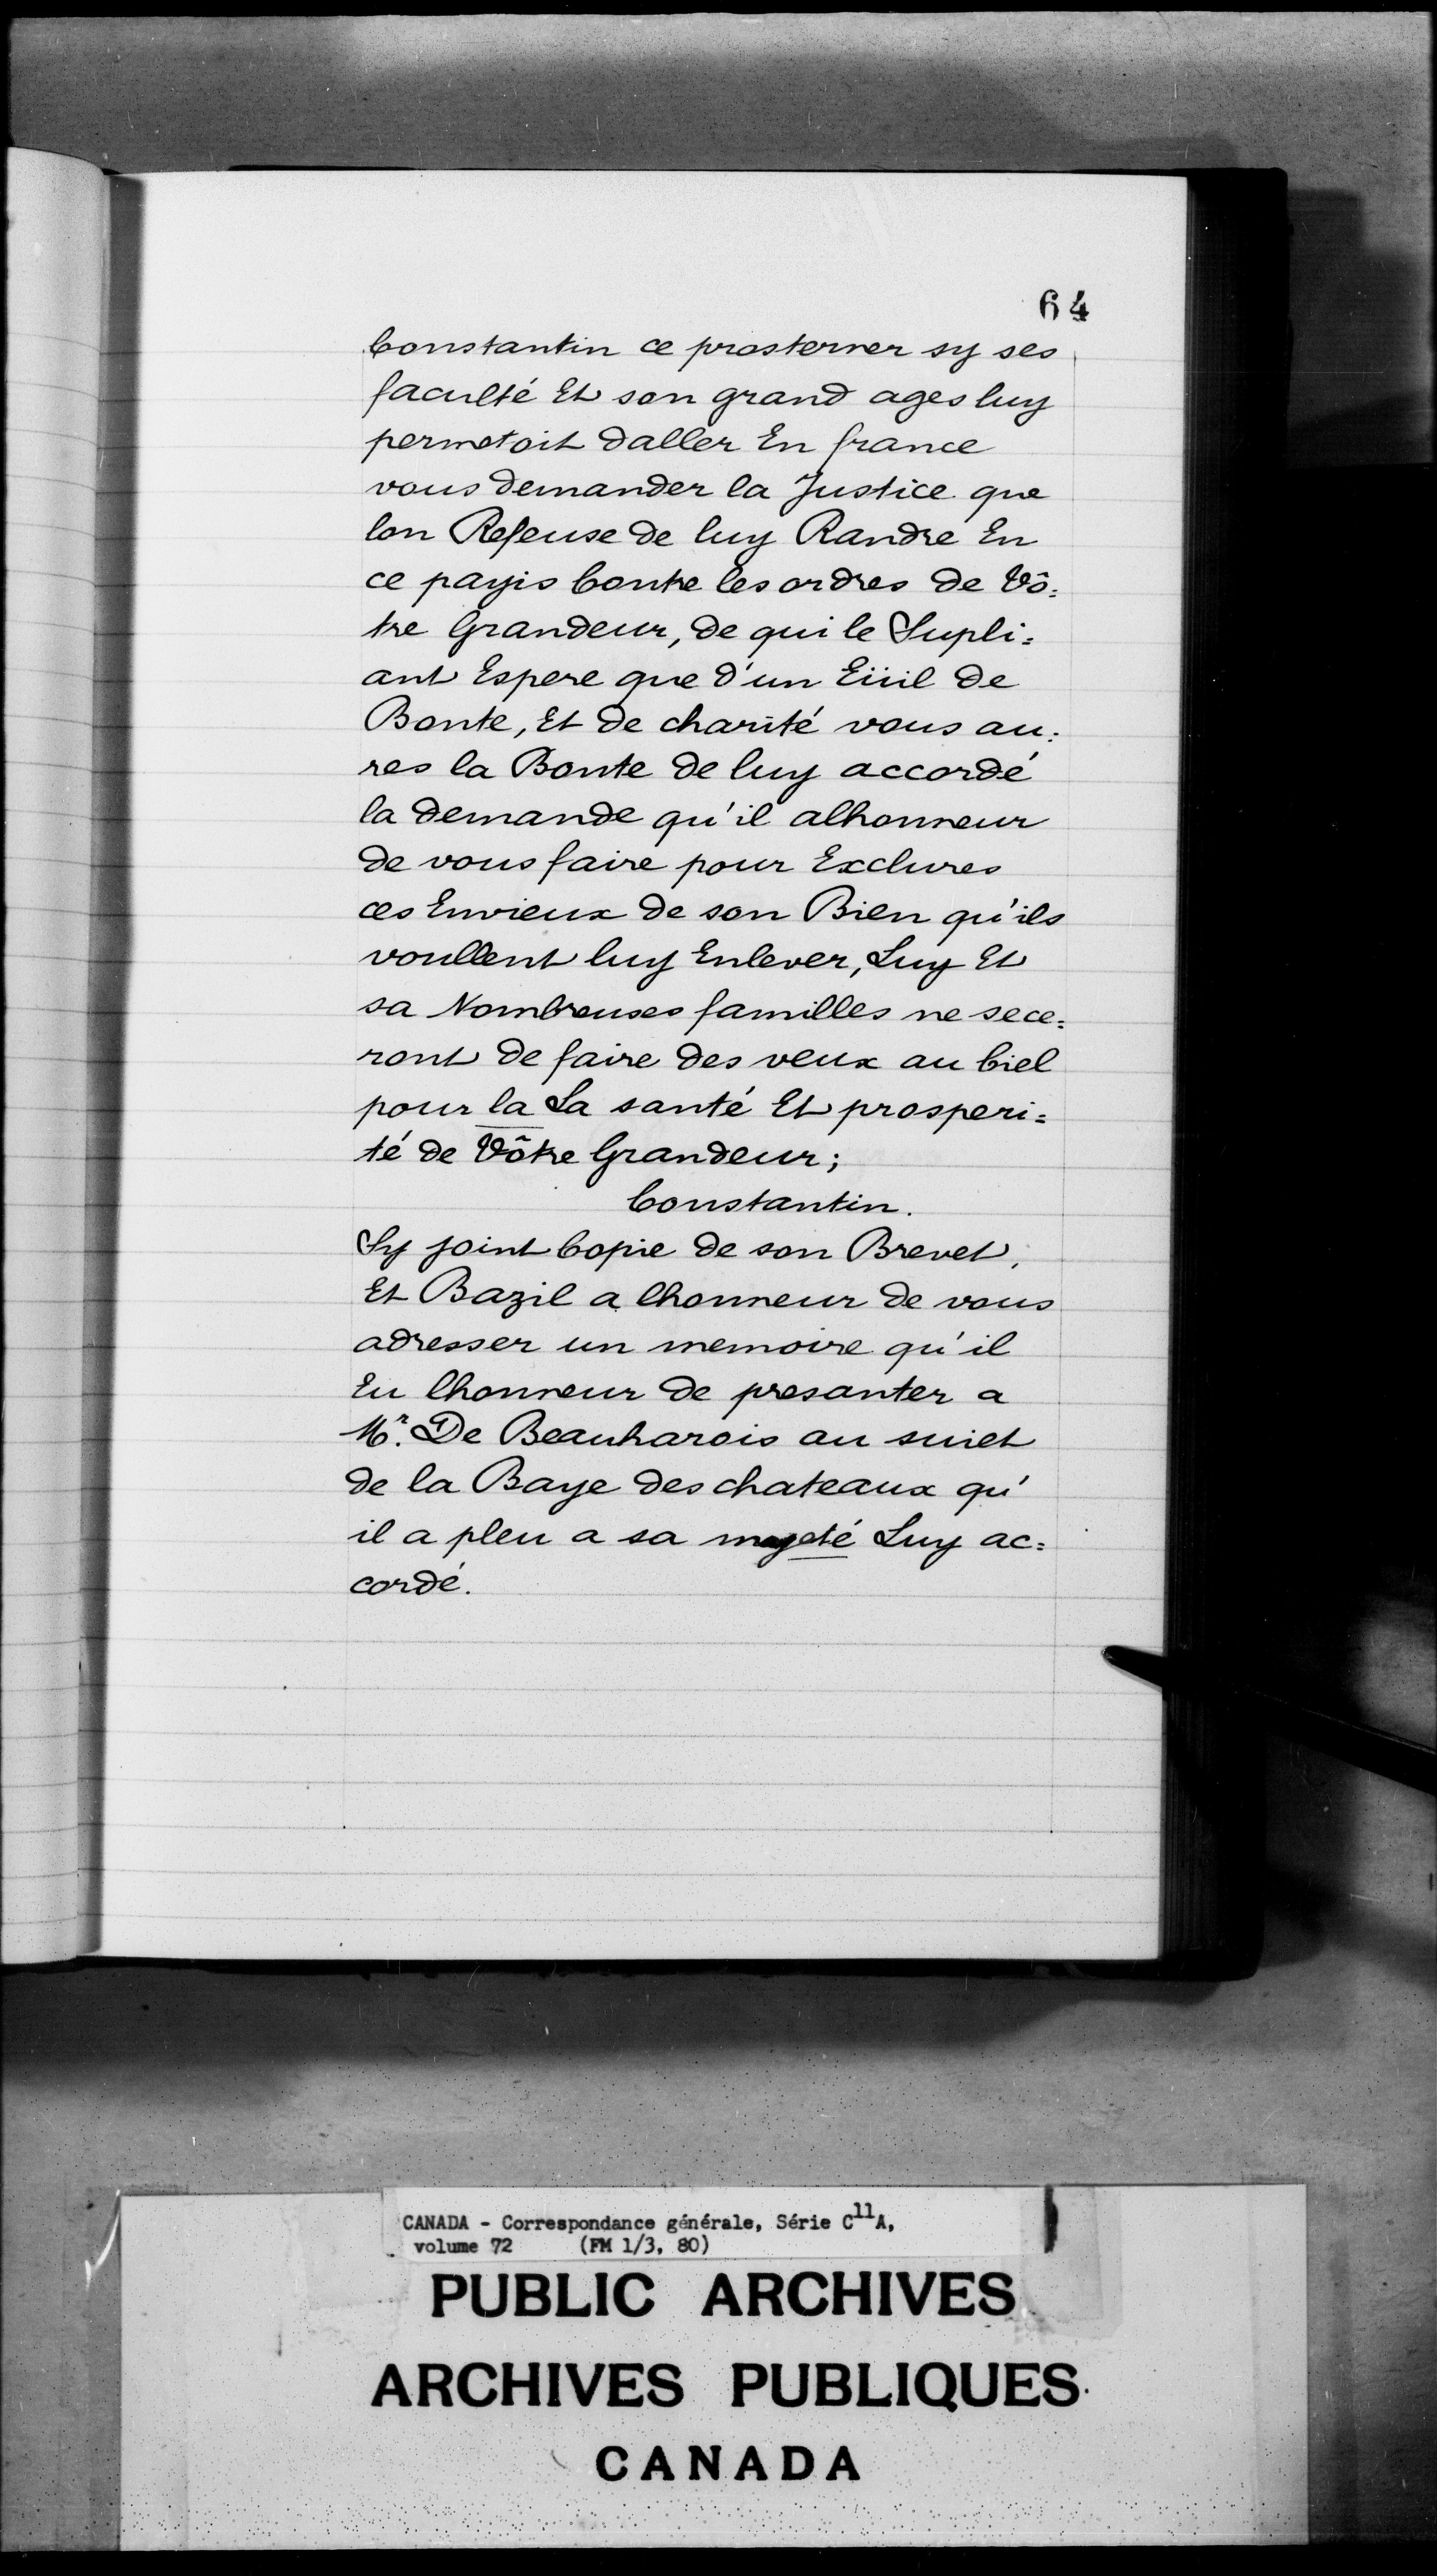 64
Constantin ce prosterner sy ses
faculté Et son grand ages luy
permetoit daller En france
vous demander la Justice que
lon Refeuse de luy Randre En
ce payis Contre les ordres de Vô=
tre Grandeur, de qui le Supli=
ant Espere que d'un Eüil de
Bonte, Et de charité vous au=
res la Bonte de luy accordé
la demande qu'il alhonneur
de vous faire pour Exclures
ces Envieux de son Bien qu'ils
voullent luy Enlever, Luy Et
sa Nombreuses familles ne sece=
ront de faire des veux au Ciel
pour la La santé Et prosperi=
té de Vôtre Grandeur;
Constantin.
Sy joint Copie de son Brevet,
Et Bazil a lhonneur de vous
adresser un memoire qu'il
Eu lhonneur de presanter a
Mr. De Beauharois au suiet
de la Baye des chateaux qu'
il a pleu a sa majeté Luy ac=
cordé.
CANADA - Correspondance générale, Série C11A,
volume 72 (FM 1/3, 80)
PUBLIC ARCHIVES
ARCHIVES PUBLIQUES
CANADA